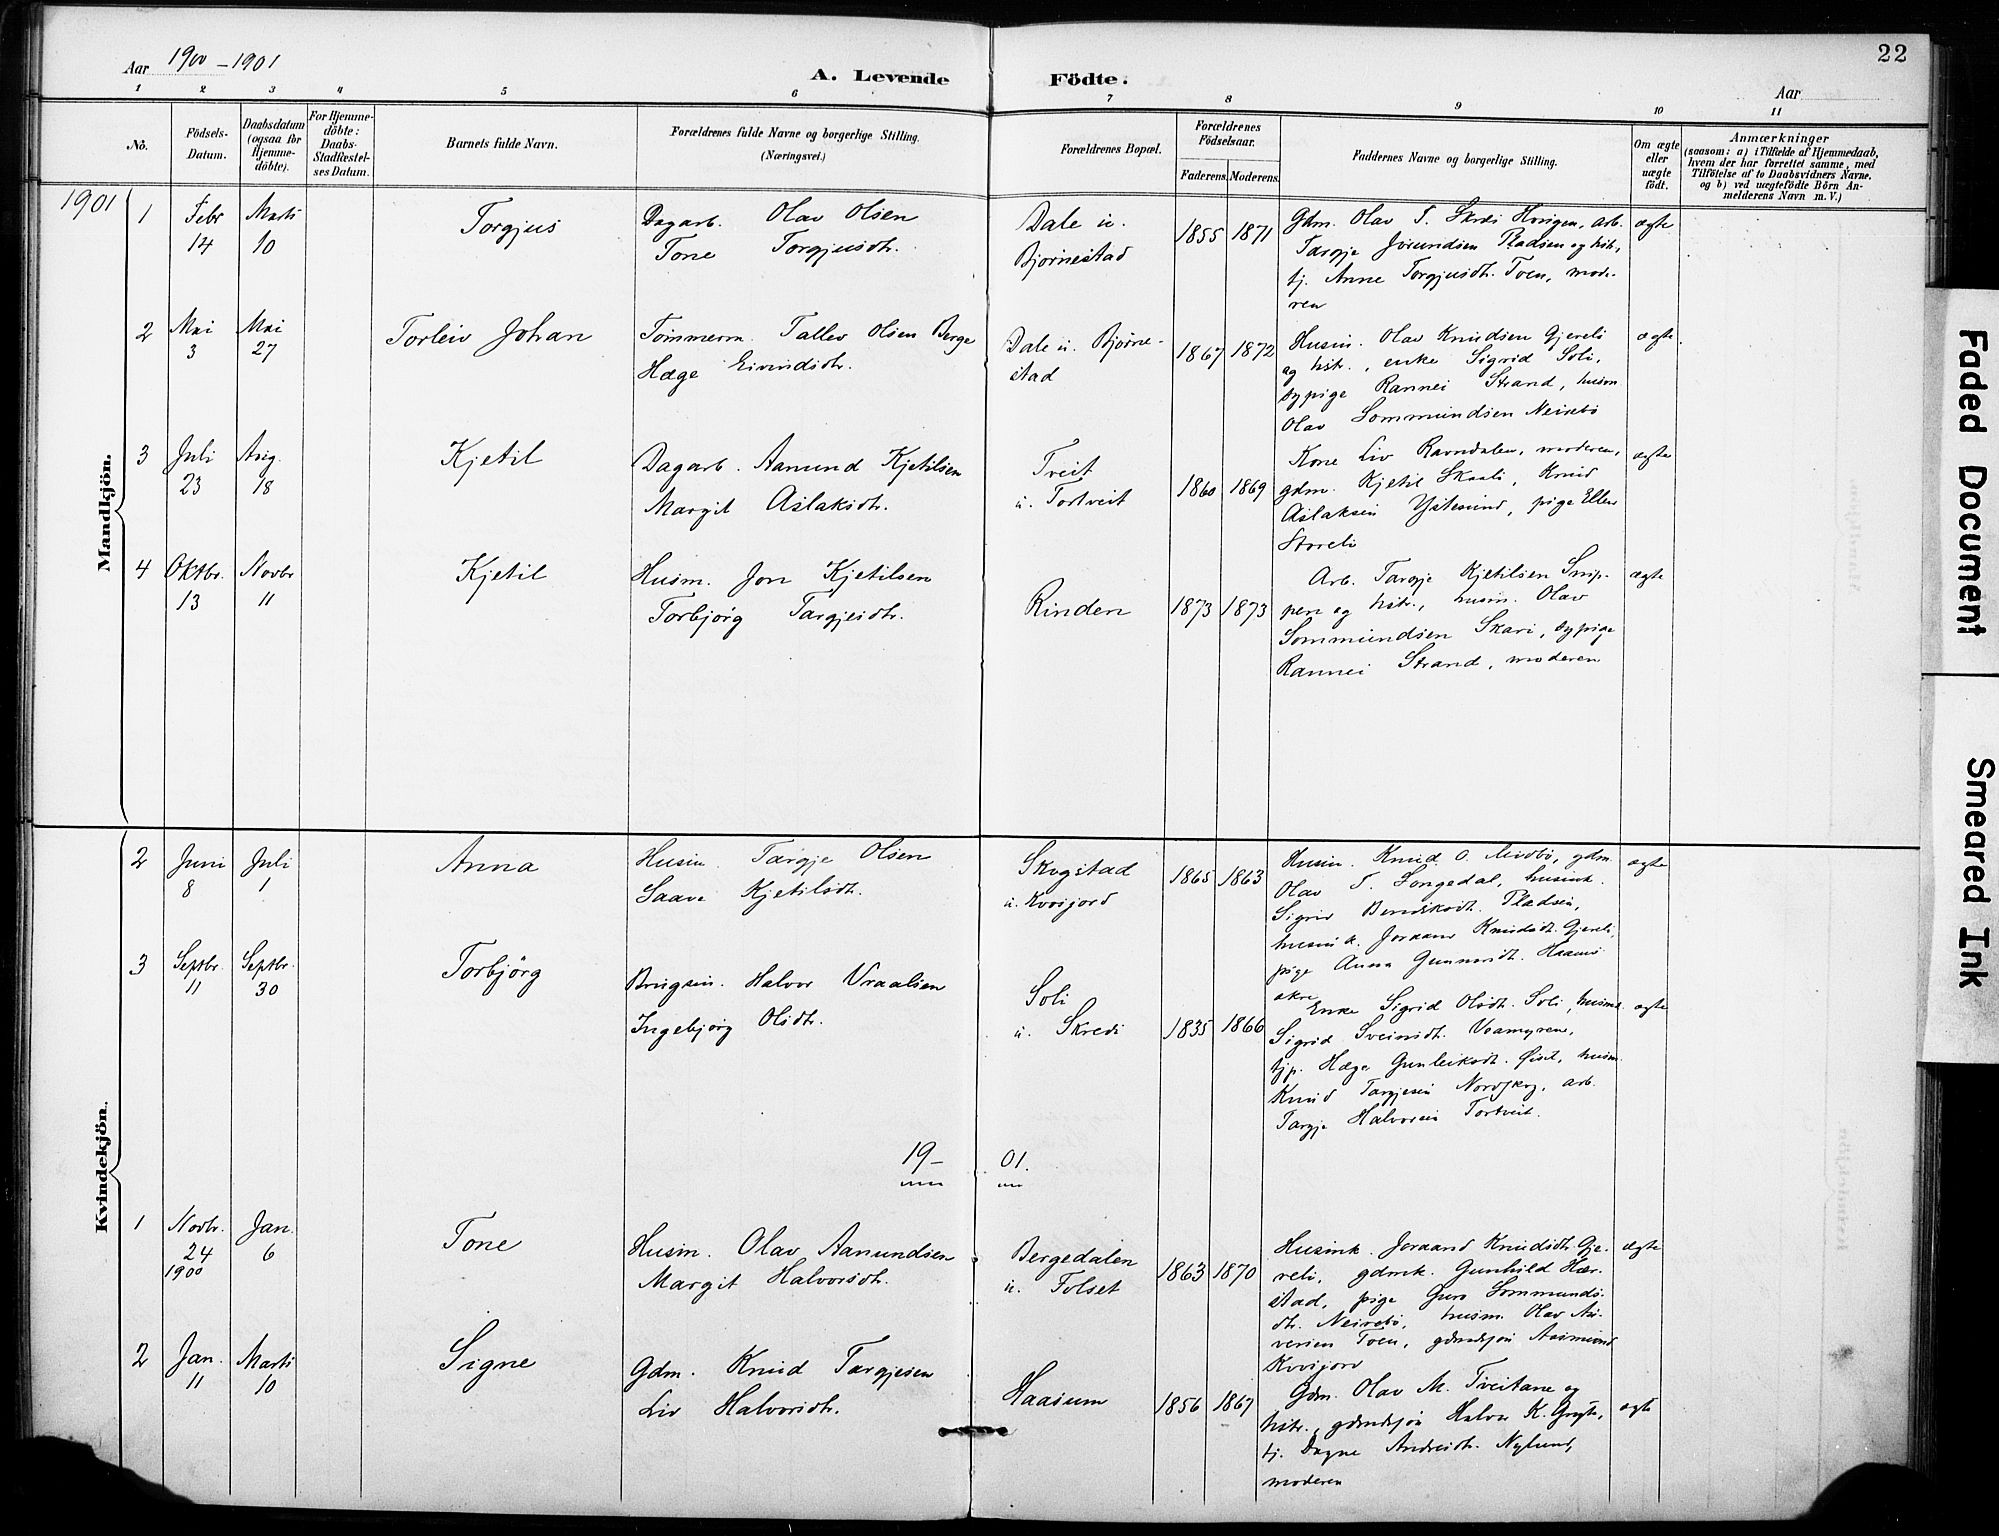 Aar 1900 - 1901
A. Levende Födte.
22
Aar
1 2 3 4 5 6 7 8 9 10 11
No.
Födsels-
Datum.
Daabsdatum
(ogsaa for
Hjemme-
döbte).
For Hjemme-
döbte:
Daabs-
Stadfæstel-
ses Datum.
Barnets fulde Navn.
Forældrenes fulde Navne og borgerlige Stilling.
(Næringsvei.)
Forældrenes Bopæl.
Forældrenes
Födselsaar.
Faderens. Moderens.
Faddernes Navne og borgerlige Stilling.
Om ægte
eller
uægte
födt.
Anmærkninger
(saasom: a) i Tilfælde af Hjemmedaab,
hvem der har forrettet samme, med
Tilföielse af to Daabsvidners Navne.
og b) ved uægtefödte Börn An-
melderens Navn m.V.)
1901
Mandkjön.
1
Febr
14
Marts
10
Torgjus
Dagarb. Olav Olsen
Tone Torgjusdtr.
Dale u.
Bjørnestad
1855 1871
Gdm. Olav T. Skrei, arb.
Targje Jorundsen Pladsen og hstr.,
tj. Anne Torgjusdtr. Toen, mode-
ren
ægte
2
Mai
3
Mai
27
Torleiv Johan
Tømmerm. Tallev Olsen Berge
Hæge Eivindsdtr.
Dale u. Bjørne-
stad
1867 1872
Husm. Olav Knudsen Gjereli
og hstr., enke Sigrid Soli,
sypige Rannei Strand, husm
Olav Sommundsen Neirebö
ægte
3
Juli
23
Aug.
18
Kjetil
Dagarb. Aamund Kjetilsen
Margit Aslaksdtr.
Tveit
u. Tortveit
1860 1869
Kone Liv Ravndalen, moderen,
gdm. Kjetil Skaali, Knud
Aslaksen Ystesund, pige Ellen
Storeli
ægte
4
Oktbr.
13
Novbr
11
Kjetil
Husm. Jon Kjetilsen
Torbjørg Targjeisdtr.
Rinden
1873 1873
Arb. Targje Kjetilsen Snip-
pen og hstr., husm. Olav
Sommundsen Skari, sypige
Rannei Strand, moderen
ægte
Kvindekjön.
2
Juni
8
Juli
1
Anna
Husm. Targje Olsen
Saave Kjetilsdtr.
Skogstad
u. Kvosjord
1865 1863
Husm. Knud O. gdm.
Olav T. Songedal, husmk.
Sigrid Pladsen,
husmk. Joraand Knudsdtr. Gjereli,
pige Anna Gunnarsdtr. Haans-
akre
ægte
3
Septbr.
11
Septbr.
30
Torbjörg
Brugsm. Halvor Vraalsen
Ingebjörg Olsdtr.
Soli
u. Skredi
1835 1866
Enke Sigrid Olsdtr. Soli, husmk
Sigrid Sveinsdtr. Voamyrene,
tjp. Hæge Gunleiksdtr. Øiset, husm.
Knud Targjesen Nordskog, arb.
Targje Halvorsen Tortveit.
ægte
19- 01.
1
Novbr.
24
1900
Jan.
6
Tone
Husm. Olav Aamundsen
Margit Halvorsdtr.
Bergedalen
u. Folset
1863 1870
Husmk. Joraand Knudsdtr. Gje-
reli, gdmk. Gunhild Hær-
stad, pige Guro Sommunds-
dtr. Neirebö, husm. Olav Au-
versen Toen, gdmdsjøn Aasmund
Kvosjord
ægte
2
Jan.
11
Marts
10
Signe
Gdm. Knud Targjesen
Liv Halvorsdtr.
Haasum
1856 1867
Gdm. Olav M. Tveitane og
hstr., gdmdsjøn Halvor K.
tj. Dagne Andreisdtr. Nylund,
moderen
ægte
Faded Document
Smeared Ink